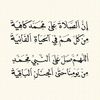 إِنَّ الصَّلَاةَ عَلَى مُحَمَّدٍ كَافِيَة
مِنْ كُلِّ هَمٍّ فِي الْحَيَاةِ الْفَانِيَة
اللَّهُمَّ صَلِّ عَلَى النَّبِيِّ مُحَمَّدٍ
مِنْ يَوْمِنَا حَتَّى الْجِنَانِ الْبَاقِيَة